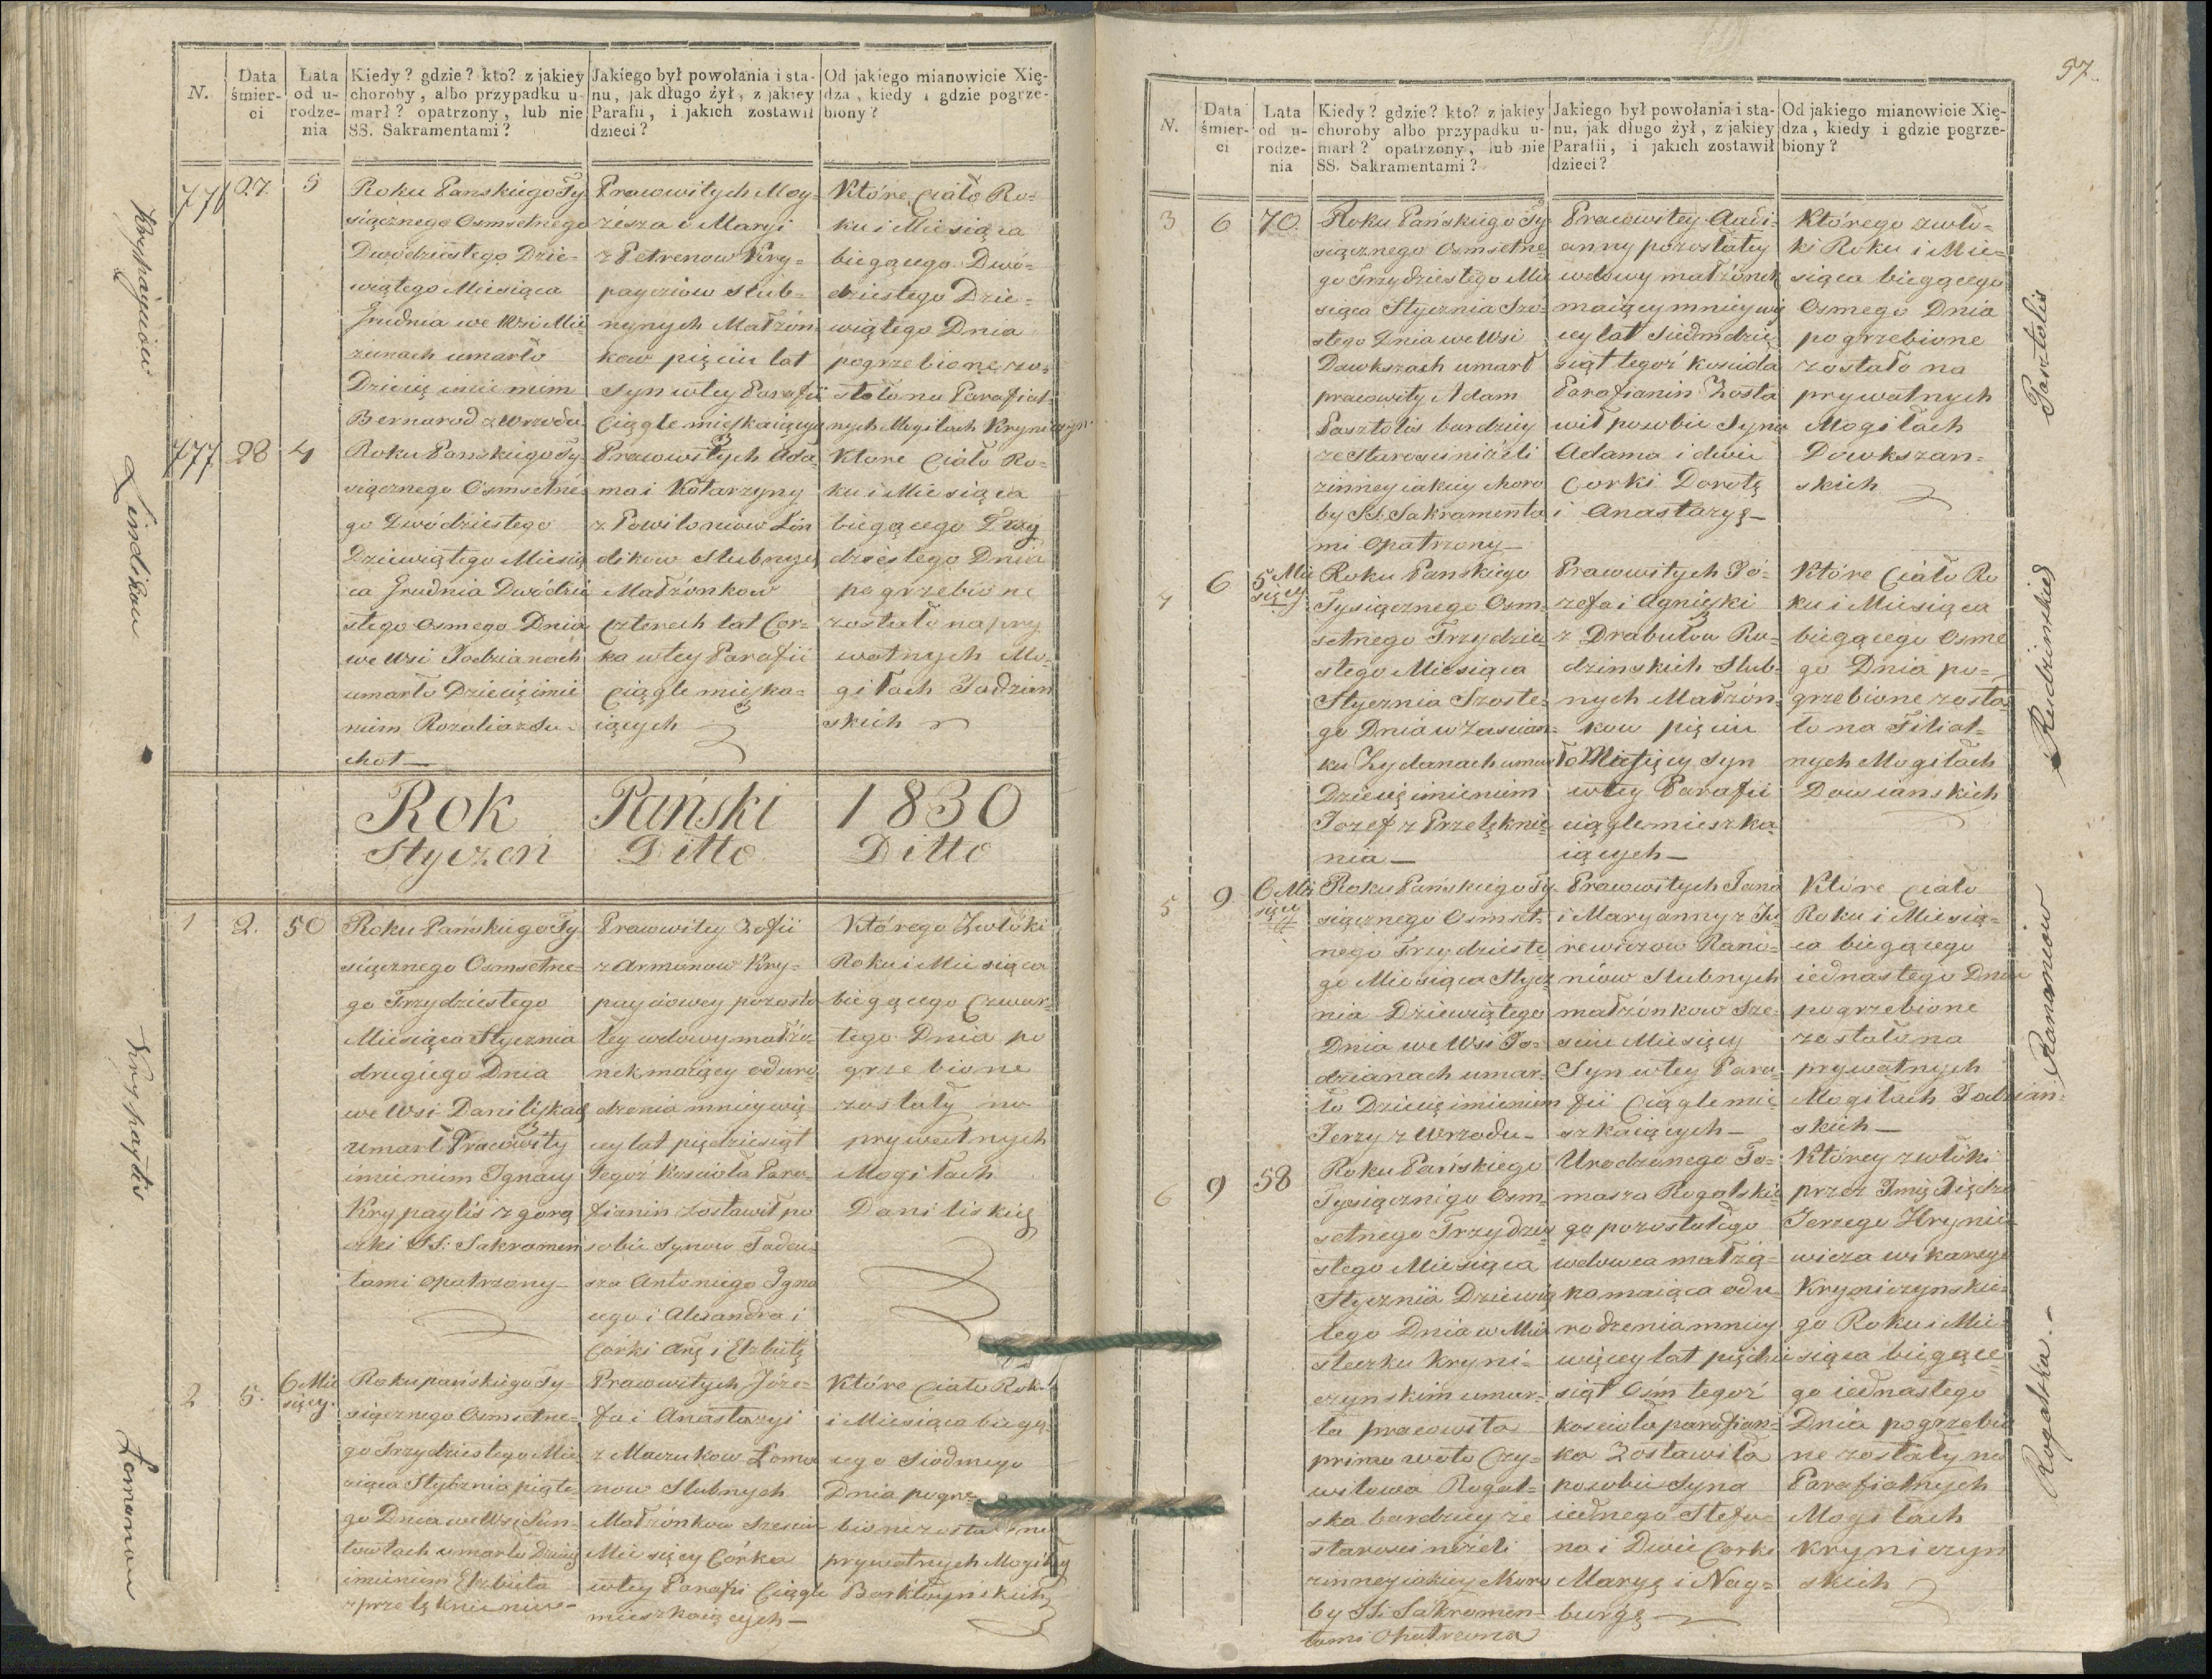 N.
Data śmier-
ci
Lata
od u-
rodze-
nia
Kiedy? gdzie? kto? z jakiey
choroby, albo przypadku u-
marł? opatrzony, lub nie
SS. Sakramentami?
Jakiego był powołania i sta-
nu, jak długo żył, z jakiey
Parafii, i jakich zostawił
dzieci?
Od jakiego mianowicie Xię-
dza, kiedy i gdzie pogrze-
biony?
776
27
5
Roku Panskiego Ty
siącznego Osmsetnego
Dwódziestego Dzie-
wiątego Miesiąca
Grudnia we Wsi Mie
żunach umarło
Dziecię imieniem
Bernarod z Wrzodu
Pracowitych Moy-
zesza i Maryi
z Petrenow Kry-
payciów Slub-
nynych Małżón
kow pięciu lat
Syn wtey Parafii
Ciągle mieszkaiących
Które Ciało Ro-
ku i Miesiąca
biegącego Dwó-
dziestego Dzie-
wiątego Dnia
pogrzebione zo-
stało na Parafial-
nych Mogiłach Kryniczyn
Krypayciow
777
28
4
Roku Panskiego Ty-
siącznego Osmsetne-
go Dwódziestego
Dziewiątego Miesią
ca Grudnia Dwódzie
stego Osmego Dnia
we Wsi Jodzianach
umarło Dziecię imie
niem Rozalia z Su-
chot
Pracowitych Ada-
ma i Katarzyny
z Powiloniow Lin
dikow Slubnych
Małżónkow
Czterech lat Cor-
ka wtey Parafii
Ciągle mieszka-
iących
Które Ciało Ro-
ku i Miesiąca
biegącego Trzy
dziestego Dnia
pogrzebione
zostało na pry
watnych Mo-
giłach Jodzian
skich
Lindikow
Rok Pański 1830
Styczeń Ditto Ditto
1
2.
50
Roku Pańskiego Ty
siącznego Osmsetne-
go Trzydziestego
Miesiąca Stycznia
drugiego Dnia
we Wsi Daniliszkach
Umarł Pracowity
imieniem Ignacy
Krypaytis z gorą
czki SS: Sakramen
tami opatrzony
Pracowitey Zofii
z Armonow Kry-
payciowey pozosta
łey wdowy małżo
nek maiący od uro
dzenia mniey wię
cey lat pięćdziesiąt
tegoż Kościoła Para-
fianin zostawił po
sobie Synow Tadeu-
sza Antoniego Igna
cego i Alexandra i
Córki Anę i Elzbietę
Którego Zwłóki
Roku i Miesiąca
biegącego Czwar-
tego Dnia po
grzebione
zostały na
prywatnych
Mogiłach
Daniliskich
Krypaytis
2
5.
6 Mie
sięcy.
Roku pańskiego Ty-
siącznego Osmsetne-
go Trzydziestego Mie
siąca Stycznia piąte
go Dnia we Wsi Sun-
towtach umarło Dziecię
imieniem Elzbieta
z przelęknienia
Pracowitych Józe-
fa i Anastazyi
z Maczukow Łoma
now Slubnych
Małżónkow Szesciu
Miesięcy Córka
wtey Parafii Ciągle
mieszkaiących
Które Ciało Roku
i Miesiąca biegą-
cego Siodmego
Dnia pogrze-
bione zosta na
prywatnych Mogiłach
Barktuynskich
Łomanow
57.
N.
Data
śmier-
ci
Lata
od u-
rodze-
nia
Kiedy? gdzie? kto? z jakiey
choroby albo przypadku u-
marł? opatrzony, lub nie
SS. Sakramentami?
Jakiego był powołania i sta-
nu, jak długo żył, z jakiey
Parafii, i jakich zostawił
dzieci?
Od jakiego mianowicie Xię-
dza, kiedy i gdzie pogrze-
biony?
3
6
70.
Roku Pańskiego Ty-
siącznego Osmsetne
go Trzydziestego Mie
siąca Stycznia Szo-
stego Dnia we Wsi
Dawkszach umarł
pracowity Adam
Pasztolis bardziey
ze Starosci niżeli
zinney iakiey choro
by SS. Sakramenta
mi Opatrzony
Pracowitey Audi-
anny pozostałey
wdowy małżónek
maiący mniey wię
cey lat Siedmdzie
siąt tegoż kosciola
Parafianin Zosta
wił posobie Syna
Adama i dwie
Corki Dorotę
i Anastazyę
Którego zwło-
ki Roku i Mie-
siąca biegącego
Osmego Dnia
pogrzebione
zostało na
prywatnych
Mogiłach
Dowkszan-
skich
Pasztolis
4
6
5 Mie
sięcy
Roku Panskiego
Tysiącznego Osm-
setnego Trzydzie-
stego Miesiąca
Stycznia Szoste-
go Dnia w Zascian-
ku Zydanach umar
Dziecię imieniem
Jozef z Przelęknie-
nia
Pracowitych Jó-
zefa i Agnieszki
z Drabutow Ru-
dzinskich Slub-
nych Małżón-
kow pięciu
ło Miesięcy Syn
wtey Parafii
ciągle mieszka
iących
Które Ciało Ro
ku i Miesiąca
biegącego Osme
go Dnia po-
grzebione zosta
ło na Filial-
nych Mogiłach
Dowianskich
Rudzinskich
5
9
6 Mie
sięcy
Roku Pańskiego Ty-
siącznego Osmset-
nego Trzydzieste
go Miesiąca Stycz
nia Dziewiątego
Dnia we Wsi Jo-
dzianach umar-
ło Dziecię imieniem
Jerzy z Wrzodu
Pracowitych Jana
i Maryanny z Ju
rewiczow Ramo-
niów Slubnych
małżónkow Sze-
sciu Miesięcy
Syn wtey Para-
fii Ciągle mie-
szkaiących
Które Ciało
Roku i Miesią-
ca biegącego
iednastego Dnia
pogrzebione
zostało na
prywatnych
Mogiłach Jodzian-
skich
Ramoniow
6
9
58
Roku Pańskiego
Tysiącznego Osm-
setnego Trzydzie
stego Miesiąca
Stycznia Dziewią
tego Dnia w Mia
steczku Kryni-
czynskim umar-
ła pracowita
primo voto Czy-
witowa Rogal-
ska bardziey ze
starosci niżeli
zinney iakiey choro
by SS. Sakramen-
tami Opatrzona
Urodzonego To-
masza Rogalskie
go pozostałego
wdowca małżą-
ka maiąca odu-
rodzenia mniey
więcey lat pięćdzie
siąt Ośm tegoż
kosciola parafian-
ka Zostawiła
posobie Syna
iednego Stefa-
na i Dwie Corki
Maryę i Nag-
burgę
Którey zwłóki
przez Imię Xiędza
Jerzego Hrynie-
wicza wikarego
Kryniczynskie-
go Roku i Mie-
siąca biegące-
go iednastego
Dnia pogrzebio
ne zostały na
Parafialnych
Mogiłach
Kryniczyn
skich
Rogalska.-